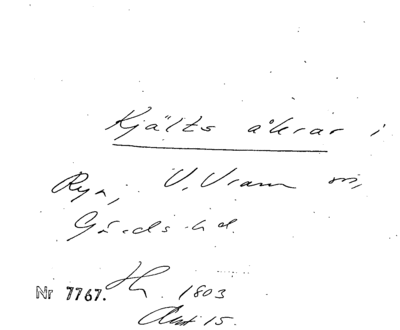 Kjälts åkrar i
Rya, V. Vram sn,
Gärds hd.
Nr 7767. 1803
Akt 15.